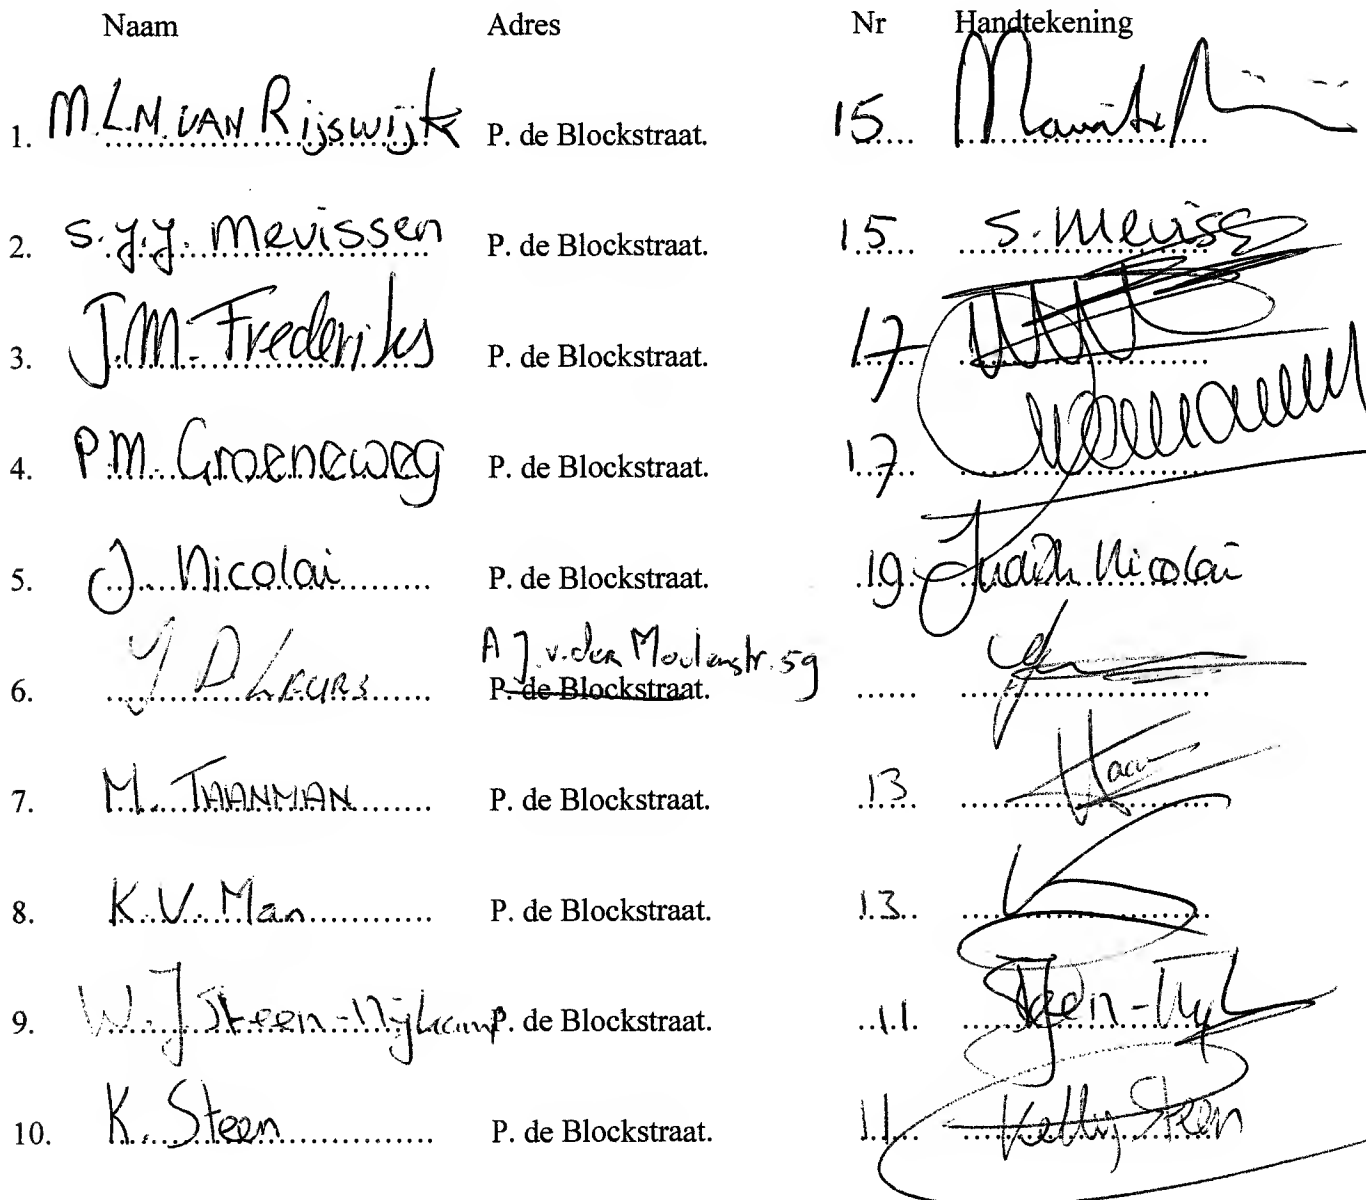 Naam Adres Nr Handtekening
1. M.L.N. VAN Rijswijk P. de Blockstraat. 15
2. S.Y.Y. Mevissen P. de Blockstraat. 15 S. Meviss
3. J.M. Frederiks P. de Blockstraat. 17
4. P.M. Groeneweg P. de Blockstraat. 17
5. J. Nicolai P. de Blockstraat. 19 Judith Nicolai
A J. v. der Moulenstr. 59
6. Y D LEURS P. de Blockstraat.
7. M. TAANMAN P. de Blockstraat. 13
8. K.V. Man P. de Blockstraat. 13
9. W.J Steen-Nijkamp P. de Blockstraat. 11 Steen-Nij
10. K. Steen P. de Blockstraat. 11 Kelly Steen